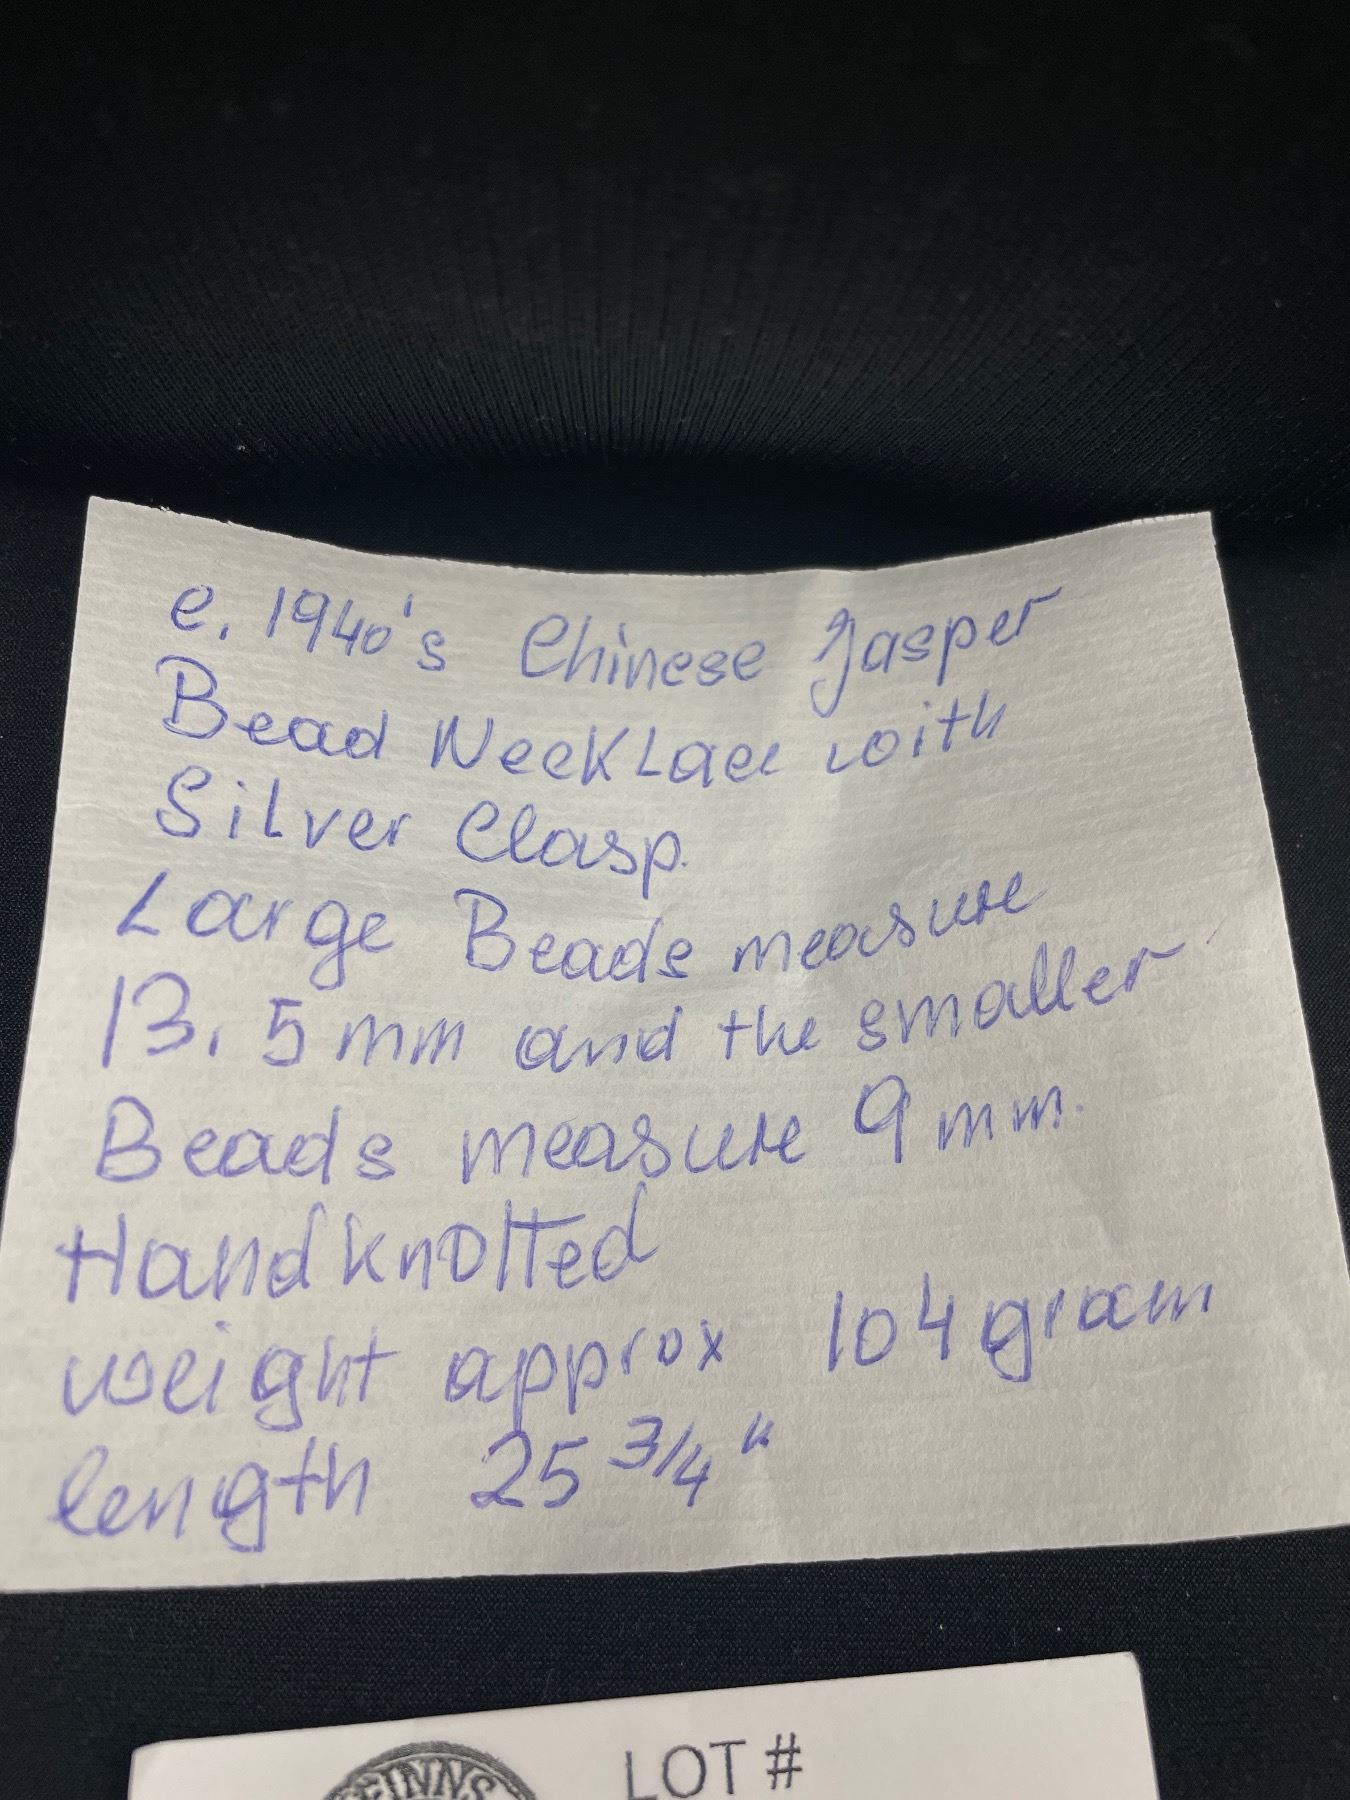 c. 1940's Chinese Jasper
Bead Necklace with
Silver Clasp.
Large Beads measure
13.5mm and the smaller
Beads measure 9mm.
Hand knotted
weight approx 104 gram
length 25 3/4"
LOT #